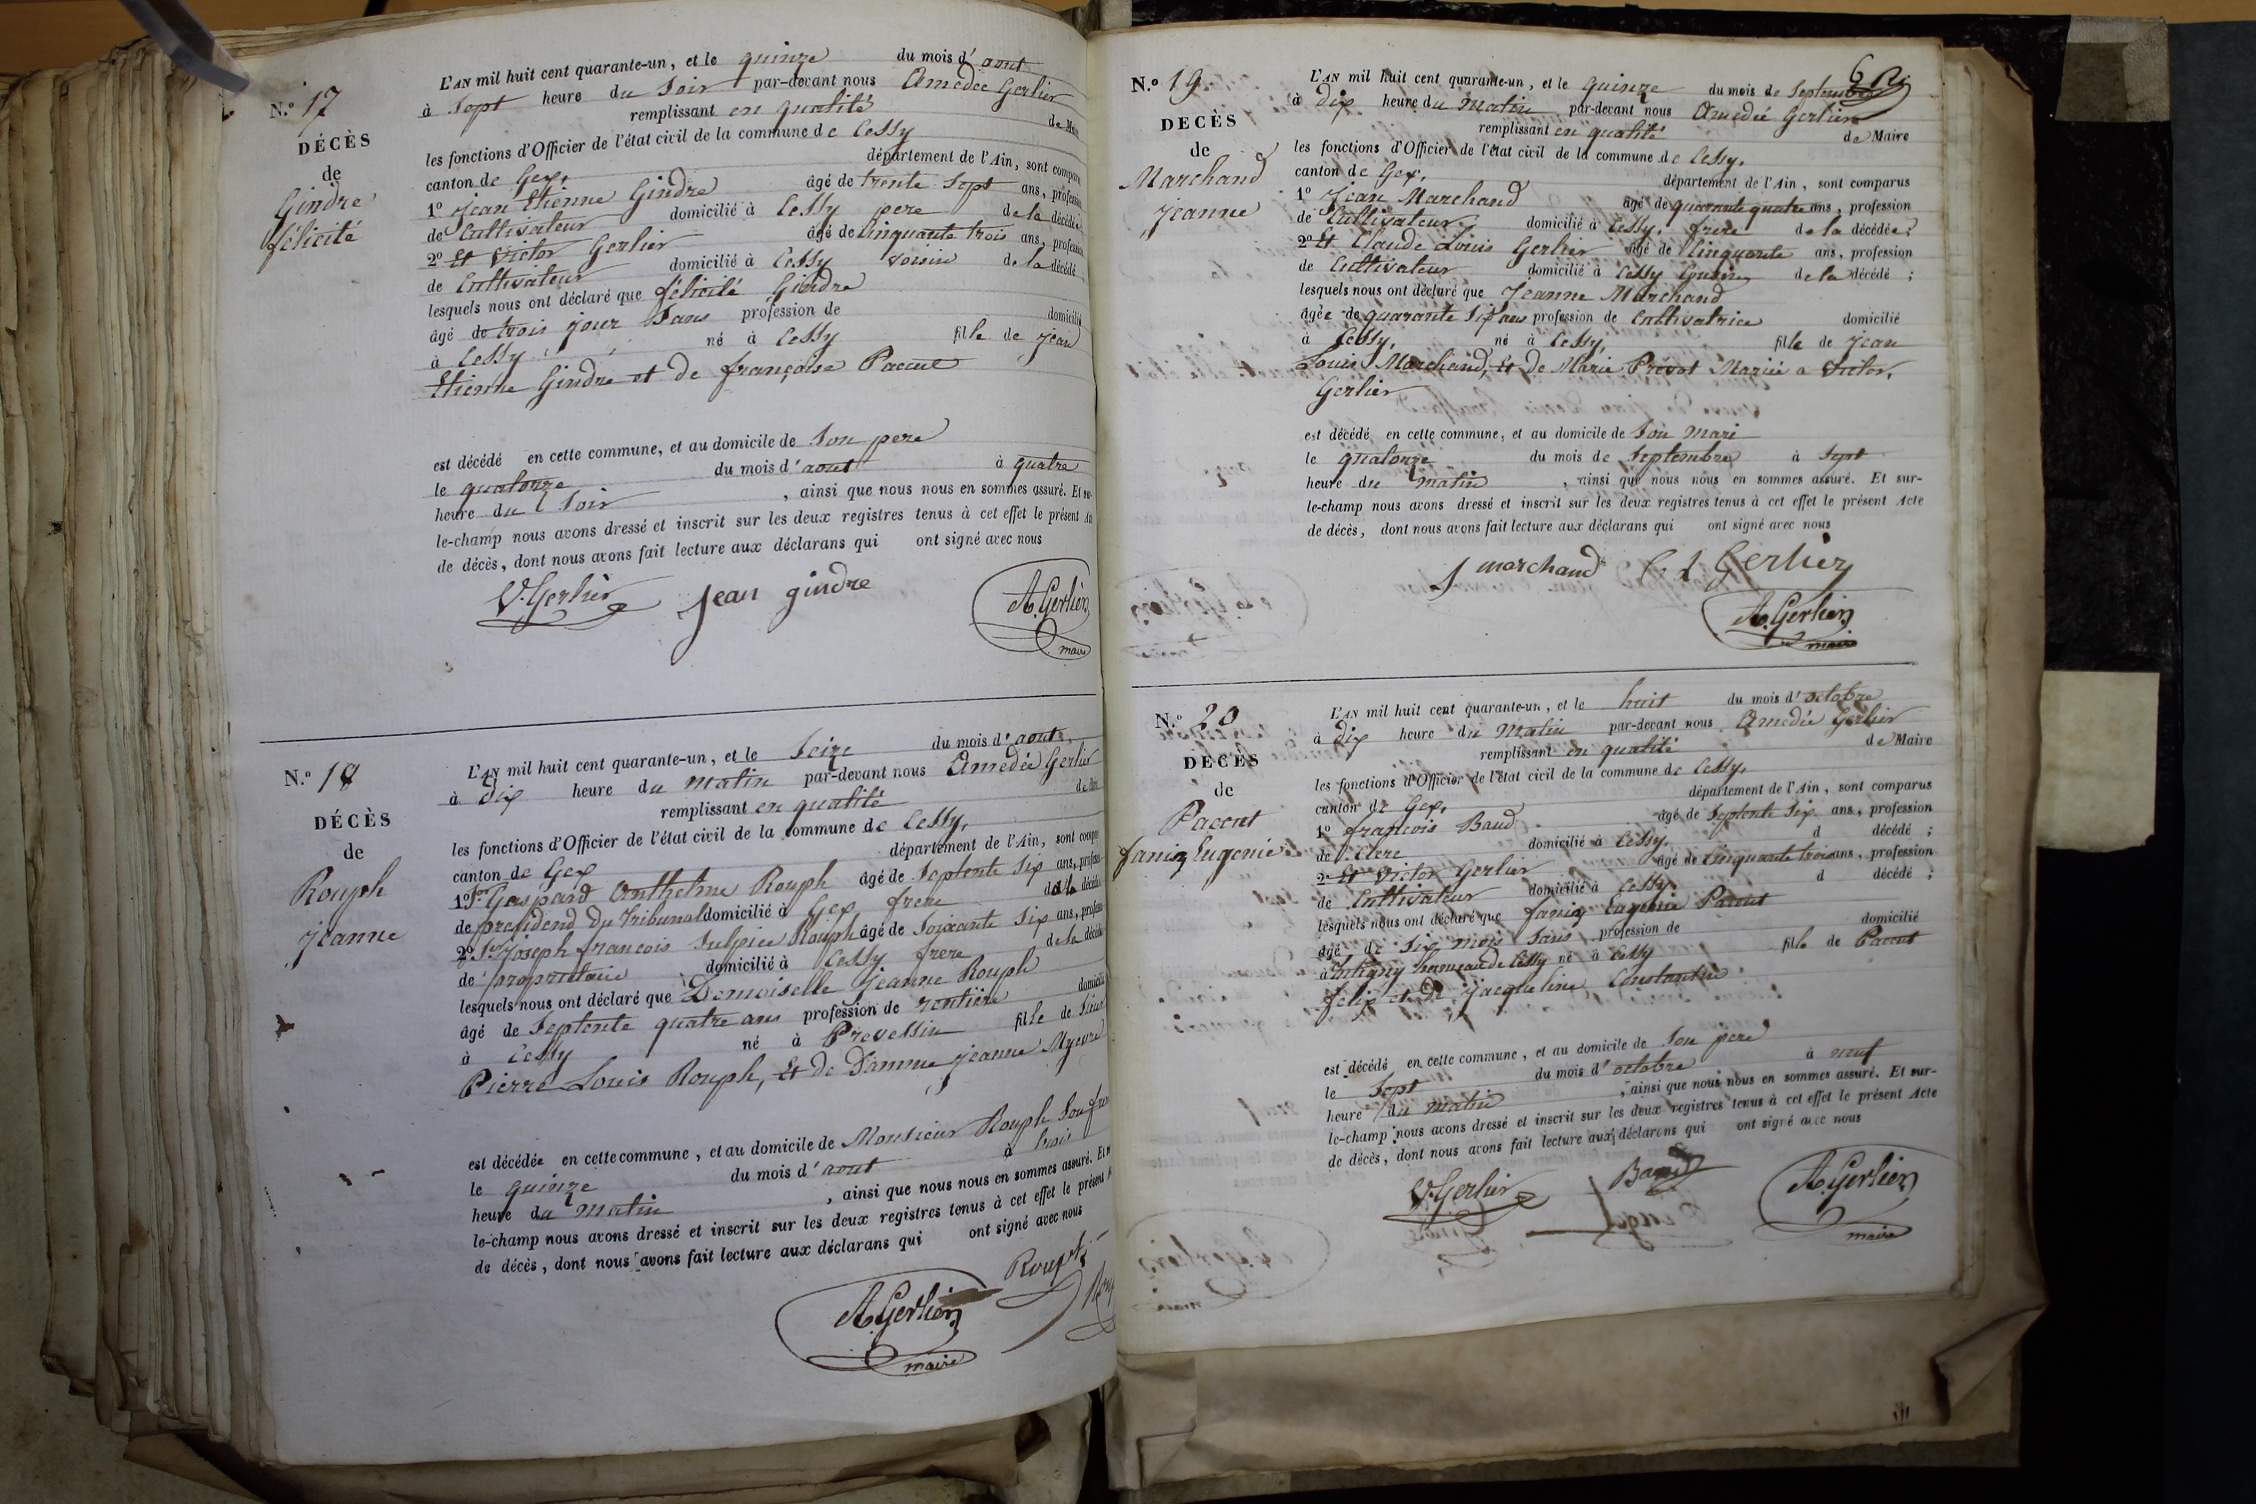 N.º 17
DÉCÈS
de
Gindre
félicité
L'AN mil huit cent quarante-un, et le quinze du mois d'aout
à Sept heure du Soir par-devant nous Amedée Gerlier
remplissant en qualité de Maire
les fonctions d'Officier de l'état civil de la commune de Cessy
canton de Gex, département de l'Ain, sont compar
1º Jean Etienne Gindre âgé de trente Sept ans, profession
de Cultivateur domicilié à Cessy pere de la décédée
2º Et Victor Gerlier âgé de Cinquante trois ans, profession
de Cultivateur domicilié à Cessy voisin de la décédé
lesquels nous ont déclaré que félicité Gindre
âgé de trois jour Sans profession de domicilié
à Cessy né à Cessy fille de Jean
Etienne Gindre et de françoise Paccut
est décédé en cette commune, et au domicile de Son pere
le quatorze du mois d'aout à quatre
heure du Soir, ainsi que nous nous en sommes assuré. Et sur-
le-champ nous avons dressé et inscrit sur les deux registres tenus à cet effet le présent
de décès, dont nous avons fait lecture aux déclarans qui ont signé avec nous
V. Gerlier Jean gindre A. Gerlier
maire
N.º 18
DÉCÈS
de
Rouph
Jeanne
L'AN mil huit cent quarante-un, et le Seize du mois d'aout
à Dix heure du Matin par-devant nous Amedée Gerlier
remplissant en qualité de
les fonctions d'Officier de l'état civil de la commune de Cessy,
canton de Gex département de l'Ain, sont compa
1º Sr Gaspard Anthelme Rouph âgé de Septente Six ans, profess
de presidend du Tribunal domicilié à Gex frere de la décédé
2º Sr Joseph francois Sulpice Rouph âgé de Soixante Six ans, profess
de proprietaire domicilié à Cessy frere de la décédé
lesquels nous ont déclaré que Demoiselle Jeanne Rouph
âgé de Septente quatre ans profession de rentiere domicilié
à Cessy né à Prevessin fille de Sieur
Pierre Louis Rouph, Et de Damme Jeanne
est décédée en cette commune, et au domicile de Monsieur Rouph Son frere
le quinze du mois d'aout à trois
heure du Matin, ainsi que nous nous en sommes assuré. Et
le-champ nous avons dressé et inscrit sur les deux registres tenus à cet effet le présent
de décès, dont nous avons fait lecture aux déclarans qui ont signé avec nous
Rouph
A. Gerlier
maire
N.º 19
DECÈS
de
Marchand
Jeanne
L'AN mil huit cent quarante-un, et le quinze du mois de Septembre
à dix heure du Matin par-devant nous Amedée Gerlier
remplissant en qualité de Maire
les fonctions d'Officier de l'état civil de la commune de Cessy.
canton de Gex, département de l'Ain, sont comparus
1º Jean Marchand âgé de quarante quatre ans, profession
de Cultivateur, domicilié à Cessy. frere de la décédée;
2º Et Claude Louis Gerlier âgé de Cinquante ans, profession
de Cultivateur domicilié à Cessy Cousin de la décédé;
lesquels nous ont déclaré que Jeanne Marchand
âgée de quarante Six ans profession de Cultivatrice domicilié
à Cessy, né à Cessy, fille de Jean
Louis Marchand, Et de Marie Prevot Mariée a Victor,
Gerlier
est décédé en cette commune, et au domicile de Son Mari
le quatorze du mois de Septembre à Sept
heure du matin, ainsi que nous nous en sommes assuré. Et sur-
le-champ nous avons dressé et inscrit sur les deux registres tenus à cet effet le présent Acte
de décès, dont nous avons fait lecture aux déclarans qui ont signé avec nous
J marchand C. L Gerlier
A. Gerlier
maire
N.º 20
DECÈS
de
Paccut
faniz Eugenie
L'AN mil huit cent quarante-un, et le huit du mois d'octobre
à dix heure du Matin par-devant nous Amedée Gerlier
remplissant en qualité de Maire
les fonctions d'Officier de l'état civil de la commune de Cessy.
canton de Gex, département de l'Ain, sont comparus
1º francois Baud âgé de Septente Six ans, profession
de Clerc domicilié à Cessy. d décédé;
2º Et Victor Gerlier âgé de Cinquante trois ans, profession
de Cultivateur domicilié à Cessy. d décédé;
lesquels nous ont déclaré que faniz Eugenie Paccut
âgé de Six mois Sans profession de domicilié
à hameau de Cessy né à Cessy fille de Paccut
felix et de Jacqueline Constantin
est décédé en cette commune, et au domicile de Son pere
le Sept du mois d'octobre à neuf
heure du matin, ainsi que nous nous en sommes assuré. Et sur-
le-champ nous avons dressé et inscrit sur les deux registres tenus à cet effet le présent Acte
de décès, dont nous avons fait lecture aux déclarans qui ont signé avec nous
V. Gerlier Baud A. Gerlier
maire